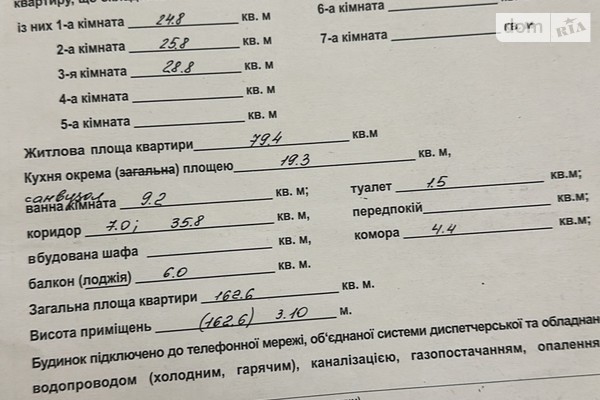 квартиру, що
із них 1-а кімната 24.8 кв. м 6-а кімната
2-а кімната 25.8 кв. м 7-а кімната кв. м
3-я кімната 28.8 кв. м
4-а кімната кв. м
5-а кімната кв. м
Житлова площа квартири 79.4 кв.м
Кухня окрема (загальна) площею 19.3 кв. м,
санвузол
ванна кімната 9.2 кв. м; туалет 1.5 кв.м;
коридор 7.0; 35.8 кв. м, передпокій кв.м;
вбудована шафа кв. м, комора 4.4 кв.м;
балкон (лоджія) 6.0 кв. м.
Загальна площа квартири 162.6 кв. м.
Висота приміщень (162.6) 3.10 м.
Будинок підключено до телефонної мережі, об'єднаної системи диспетчерської та обладнан
водопроводом (холодним, гарячим), каналізацією, газопостачанням, опалення
dom RIA